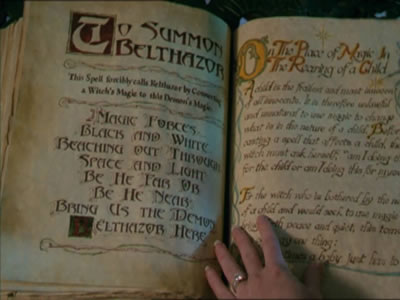 To Summon
Belthazor
This Spell forcibly calls Belthazor by Connecting
a Witch's Magic to this Demon's Magic.
Magic Forces
Black and White
Reaching out Through
Space and Light
Be He Far Or
Be He Near
Bring Us the Demon
Belthazor Here
On The Place of Magic In
The Rearing of a Child
A child is the frailest and most innocent
of all innocents. It is therefore unlawful
and unnatural to use magic to change
what is in the nature of a child. Before
casting a spell that affects a child, the
witch must ask herself, "am I doing this
for the child or am I doing this for myself
For the witch who be bothered by the
of a child and would seek to use magic
peace and quiet, this
thing:
a baby